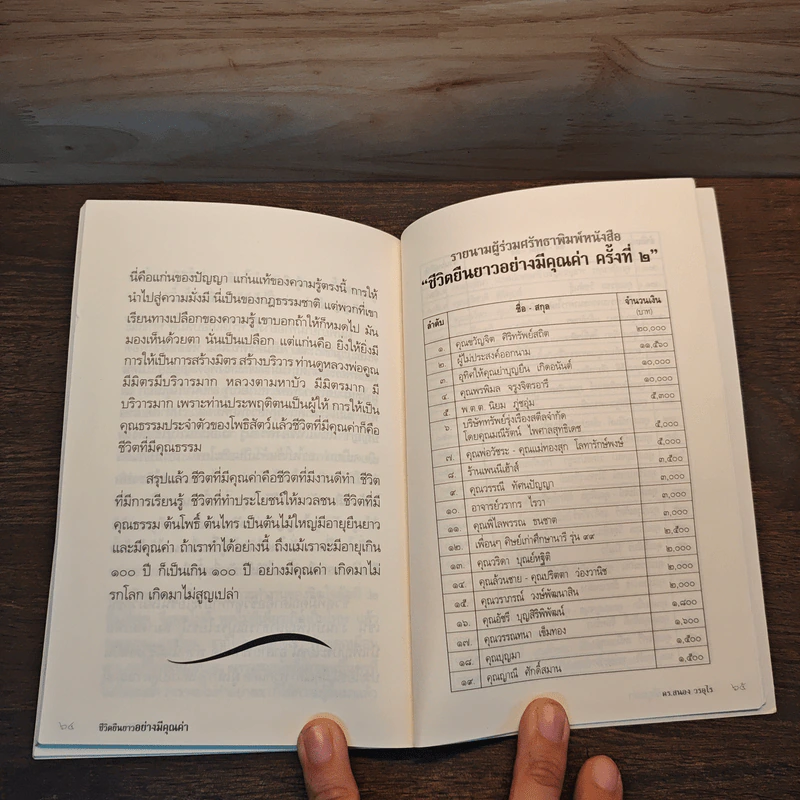 นี่คือแก่นของปัญญา แก่นแท้ของความรู้ตรงนี้ การให้
นำไปสู่ความมั่งมี นี่เป็นของกฎธรรมชาติ แต่พวกที่เขา
เรียนทางเปลือกของความรู้ เขาบอกถ้าให้ก็หมดไป มัน
มองเห็นด้วยตา นั่นเป็นเปลือก แต่แก่นคือ ยิ่งให้ยิ่งมี
การให้เป็นการสร้างมิตร สร้างบริวาร ท่านดูหลวงพ่อคูณ
มีมิตรมีบริวารมาก หลวงตามหาบัว มีมิตรมาก มี
บริวารมาก เพราะท่านประพฤติตนเป็นผู้ให้ การให้เป็น
คุณธรรมประจำตัวของโพธิสัตว์แล้วชีวิตที่มีคุณค่าก็คือ
ชีวิตที่มีคุณธรรม
สรุปแล้ว ชีวิตที่มีคุณค่าคือชีวิตที่มีงานดีทำ ชีวิต
ที่มีการเรียนรู้ ชีวิตที่ทำประโยชน์ให้มวลชน ชีวิตที่มี
คุณธรรม ต้นโพธิ์ ต้นไทร เป็นต้นไม้ใหญ่มีอายุยืนยาว
และมีคุณค่า ถ้าเราทำได้อย่างนี้ ถึงแม้เราจะมีอายุเกิน
๑๐๐ ปี ก็เป็นเกิน ๑๐๐ ปี อย่างมีคุณค่า เกิดมาไม่
รกโลก เกิดมาไม่สูญเปล่า
ชีวิตยืนยาวอย่างมีคุณค่า
รายนามผู้ร่วมศรัทธาพิมพ์หนังสือ
“ชีวิตยืนยาวอย่างมีคุณค่า ครั้งที่ ๒”
ลำดับ ชื่อ - สกุล จำนวนเงิน
(บาท)
๑. คุณขวัญจิต ศิริทรัพย์สถิต ๒๐,๐๐๐
๒. ผู้ไม่ประสงค์ออกนาม ๑๑,๕๖๐
๓. อุทิศให้คุณย่าบุญยืน เกิดอนันต์ ๑๐,๐๐๐
๔. คุณพรพิมล จรูงจิตรอารี ๑๐,๐๐๐
๕. พ.ต.ต. นิยม ภู่ชอุ่ม ๕,๓๐๐
๖. บริษัททรัพย์รุ่งเรืองสตีลจำกัด
โดยคุณมณีรัตน์ ไพศาลสุทธิเดช ๕,๐๐๐
๗. คุณพ่อวัชระ - คุณแม่ทองสุก โลทารักษ์พงษ์ ๕,๐๐๐
๘. ร้านเพนนีเฮ้าส์ ๓,๕๐๐
๙. คุณวรรณี ทัศนปัญญา ๓,๐๐๐
๑๐. อาจารย์วรากร ไรวา ๓,๐๐๐
๑๑. คุณพิไลพรรณ ธนชาต ๓,๐๐๐
๑๒. เพื่อนๆ ศิษย์เก่าศึกษานารี รุ่น ๙๙ ๒,๕๐๐
๑๓. คุณวริดา บุณย์หฐิติ ๒,๐๐๐
๑๔. คุณล้วนชาย - คุณปริตตา ว่องวานิช ๒,๐๐๐
๑๕. คุณวราภรณ์ วงษ์พัฒนาสิน ๒,๐๐๐
๑๖. คุณอัชรี บุญสิริพิพัฒน์ ๑,๘๐๐
๑๗. คุณวรรณทนา เข็มทอง ๑,๖๐๐
๑๘. คุณบุญมา ๑,๕๐๐
๑๙. คุณญาณี ศักดิ์สมาน ๑,๕๐๐
ดร.สนอง วรอุไร